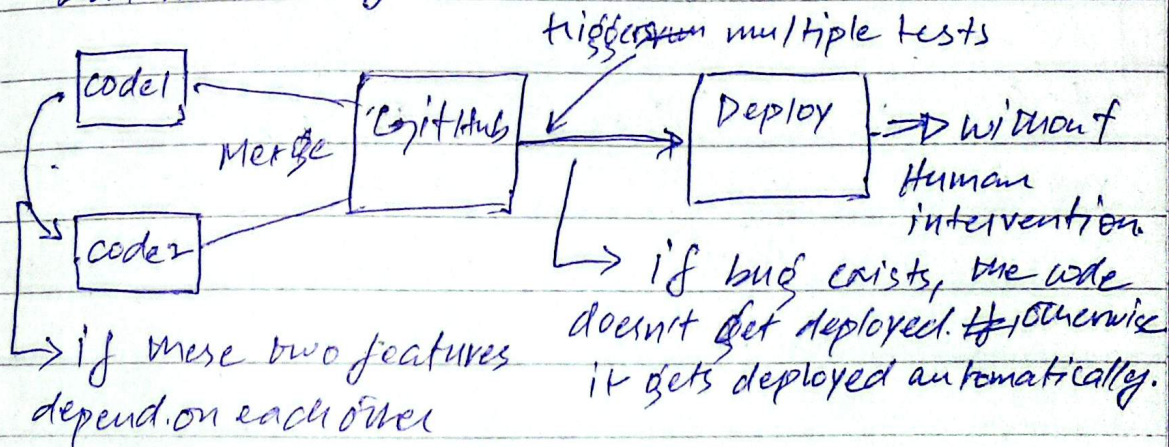 triggers multiple tests
code1
GitHub
Deploy
Merge
=> without
Human
intervention.
code2
if bug exists, the code
doesn't get deployed. If, otherwise
it gets deployed automatically.
if these two features
depend on each other